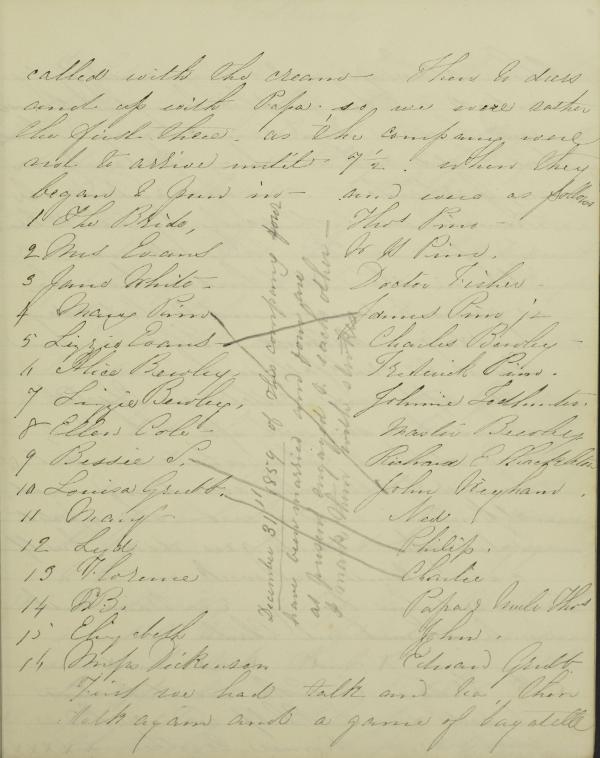 called with the cream – Then to dress
and up with Papa. so we were rather
the first there. as the company were
not to arrive until 7½. when they
began to pour in – and were as follows
1 The Bride, Thos Pim –
2 Mrs Evans Pim.
3 Jane White – Doctor Fisher –
4 Mary Pim James Pim jr
5 Lizzie Evans – Charles Bewley –
6 Alice Bewley, Frederick Pim.
7 Lizzie Bewley, Johnnie Todhunter.
8 Ellen Cole – Master Bewley
9 Bessie S. Richard E Shackleton
10 Louisa Grubb. John
11 Mary – Ned
12 Lyd Philip.
13 Florence Charlie
14 Papa & Uncle Thos
15 Elizabeth John.
16 Miss Dickinson Edward Grubb
First we had talk and tea, then
talk again and a game of bagatelle
December 31st 1859 of this company four
have been married and four are
at present engaged to each other –
I mark them with strokes